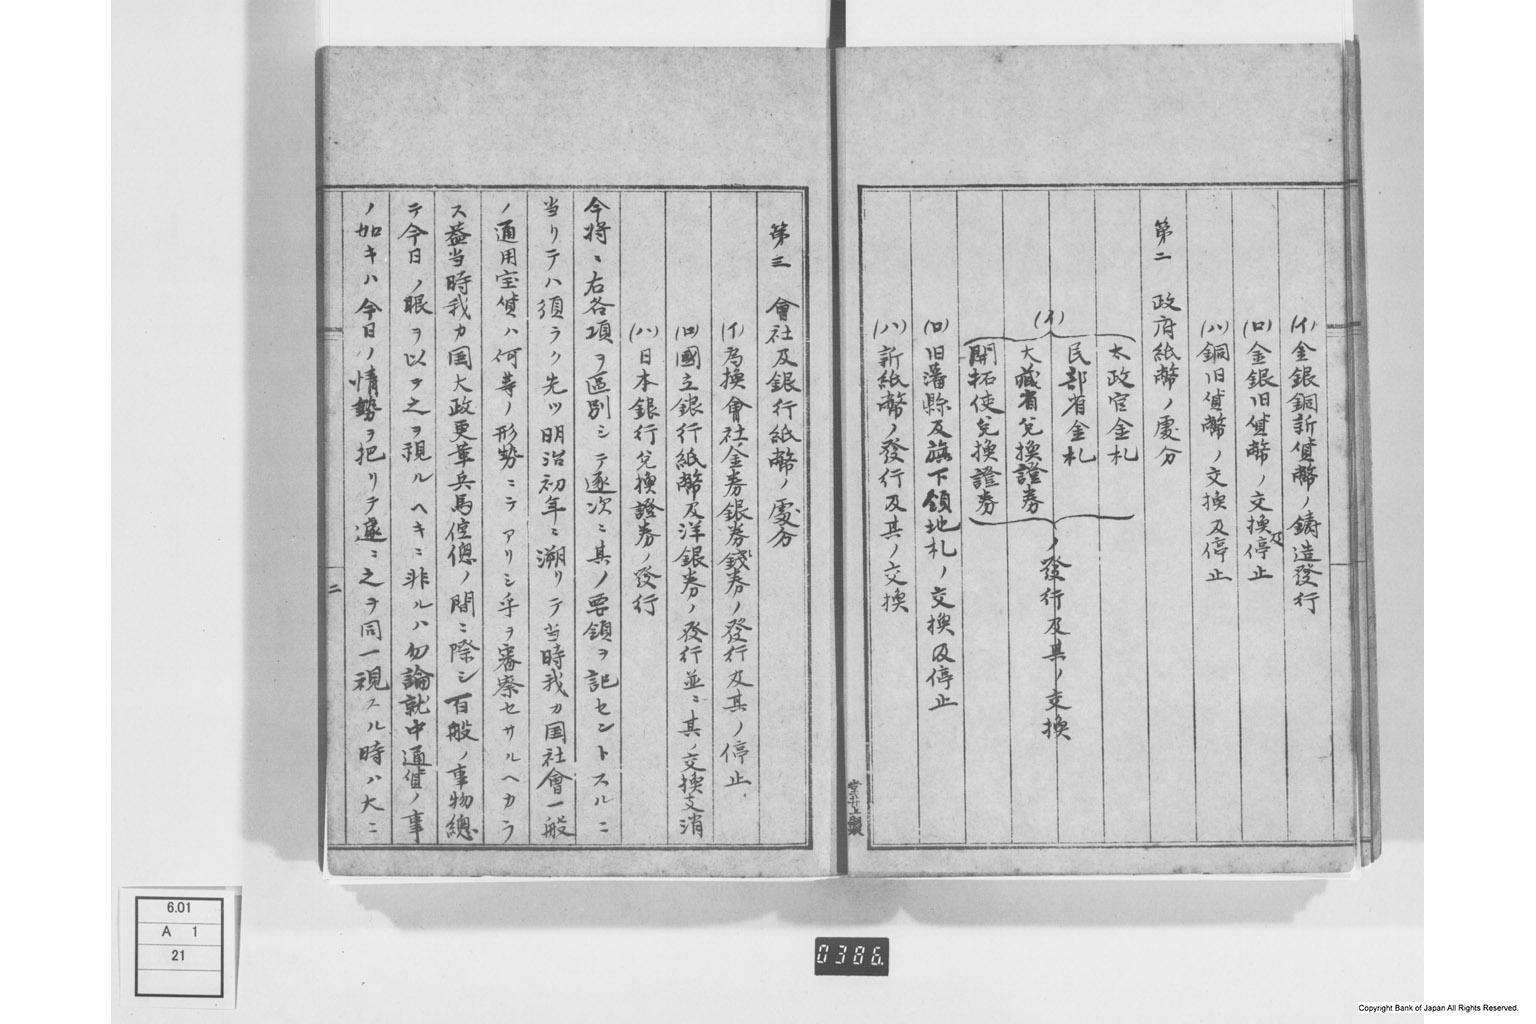 (イ)金銀銅新貨幣ノ鋳造發行
(ロ)金銀旧貨幣ノ交換及停止
(ハ)銅旧貨幣ノ交換及停止
第二 政府紙幣ノ處分
(イ)
太政官金札
民部省金札
大藏省兌換證券
開拓使兌換證券
ノ發行及其ノ交換
(ロ)旧藩縣及旗下領地札ノ交換及停止
(ハ)新紙幣ノ發行及其ノ交換
第三 會社及銀行紙幣ノ處分
(イ)為換會社金券銀券錢券ノ發行及其ノ停止
(ロ)國立銀行紙幣及洋銀券ノ發行並ニ其ノ交換支消
(ハ)日本銀行兌換證券ノ發行
今将ニ右各項ヲ區別シテ逐次ニ其ノ要領ヲ記セントスルニ
当リテハ須ラク先ツ明治初年ニ溯リテ当時我カ国社會一般
ノ通用宝貨ハ何等ノ形勢ニテアリシ乎ヲ審察セサルヘカラ
ス蓋当時我カ国大政更革兵馬倥偬ノ間ニ際シ百般ノ事物總
テ今日ノ眼ヲ以テ之ヲ視ルヘキニ非ルハ勿論就中通貨ノ事
ノ如キハ今日ノ情勢ヲ把リテ遽ニ之ヲ同一視スル時ハ大ニ
二
6.01
A 1
21
0386
Copyright Bank of Japan All Rights Reserved.